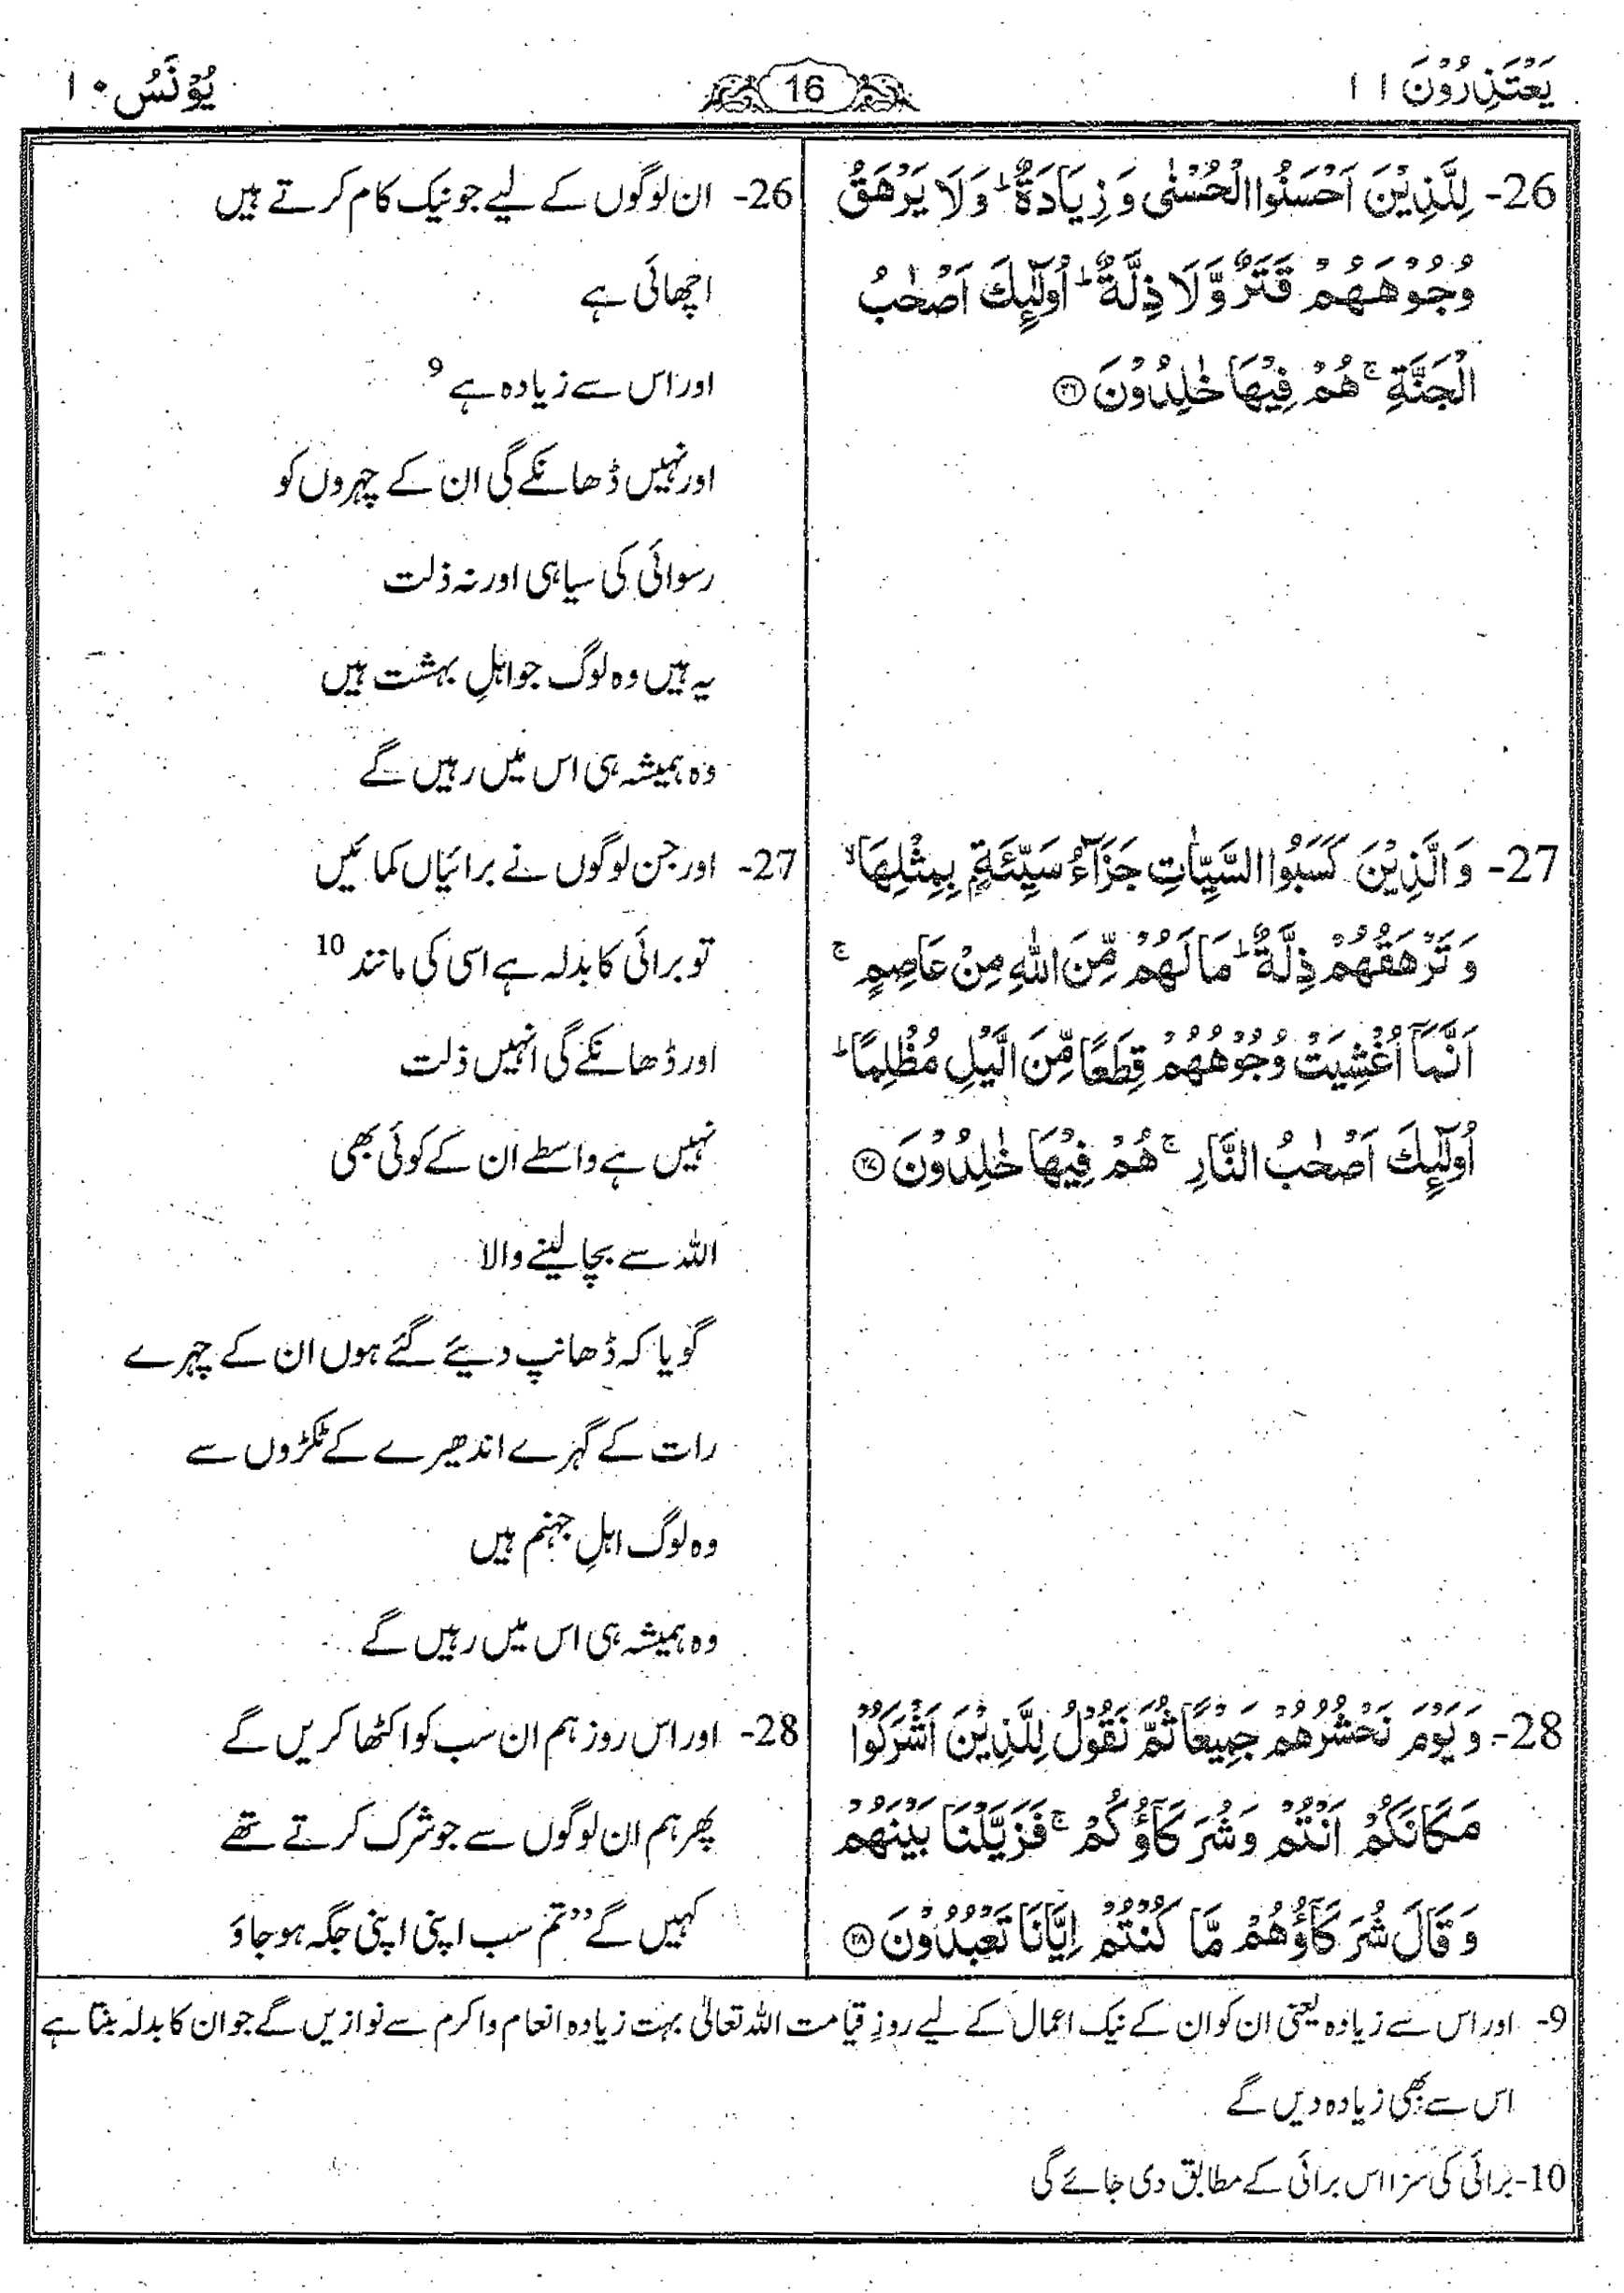 يَعْتَذِرُوْنَ ١١
16
يُوْنُسُ ١٠
26- لِلَّذِيْنَ اَحْسَنُوا الْحُسْنٰى وَ زِيَادَةٌ ؕ وَ لَا يَرْهَقُ
وُجُوْهَهُمْ قَتَرٌ وَّ لَا ذِلَّةٌ ؕ اُولٰٓئِكَ اَصْحٰبُ
الْجَنَّةِ ۚ هُمْ فِيْهَا خٰلِدُوْنَ ۝۲۶
27- وَ الَّذِيْنَ كَسَبُوا السَّيِّاٰتِ جَزَآءُ سَيِّئَةٍۭ بِمِثْلِهَا ۙ
وَ تَرْهَقُهُمْ ذِلَّةٌ ؕ مَا لَهُمْ مِّنَ اللّٰهِ مِنْ عَاصِمٍ ۚ
اَنَّمَاۤ اُغْشِيَتْ وُجُوْهُهُمْ قِطَعًا مِّنَ الَّيْلِ مُظْلِمًا ؕ
اُولٰٓئِكَ اَصْحٰبُ النَّارِ ۚ هُمْ فِيْهَا خٰلِدُوْنَ ۝۲۷
28- وَ يَوْمَ نَحْشُرُهُمْ جَمِيْعًا ثُمَّ نَقُوْلُ لِلَّذِيْنَ اَشْرَكُوْا
مَكَانَكُمْ اَنْتُمْ وَ شُرَكَآؤُكُمْ ۚ فَزَيَّلْنَا بَيْنَهُمْ
وَ قَالَ شُرَكَآؤُهُمْ مَّا كُنْتُمْ اِيَّانَا تَعْبُدُوْنَ ۝۲۸
26- ان لوگوں کے لیے جو نیک کام کرتے ہیں
اچھائی ہے
اور اس سے زیادہ ہے 9
اور نہیں ڈھانکے گی ان کے چہروں کو
رسوائی کی سیاہی اور نہ ذلت
یہ ہیں وہ لوگ جو اہلِ بہشت ہیں
وہ ہمیشہ ہی اس میں رہیں گے
27- اور جن لوگوں نے برائیاں کمائیں
تو برائی کا بدلہ ہے اسی کی مانند 10
اور ڈھانکے گی انہیں ذلت
نہیں ہے واسطے ان کے کوئی بھی
اللہ سے بچا لینے والا
گویا کہ ڈھانپ دیئے گئے ہوں ان کے چہرے
رات کے گہرے اندھیرے کے ٹکڑوں سے
وہ لوگ اہلِ جہنم ہیں
وہ ہمیشہ ہی اس میں رہیں گے
28- اور اس روز ہم ان سب کو اکٹھا کریں گے
پھر ہم ان لوگوں سے جو شرک کرتے تھے
کہیں گے ”تم سب اپنی اپنی جگہ ہو جاؤ
9- اور اس سے زیادہ یعنی ان کو ان کے نیک اعمال کے لیے روزِ قیامت اللہ تعالیٰ بہت زیادہ انعام و اکرم سے نوازیں گے جو ان کا بدلہ بنتا ہے
اس سے بھی زیادہ دیں گے
10- برائی کی سزا اس برائی کے مطابق دی جائے گی